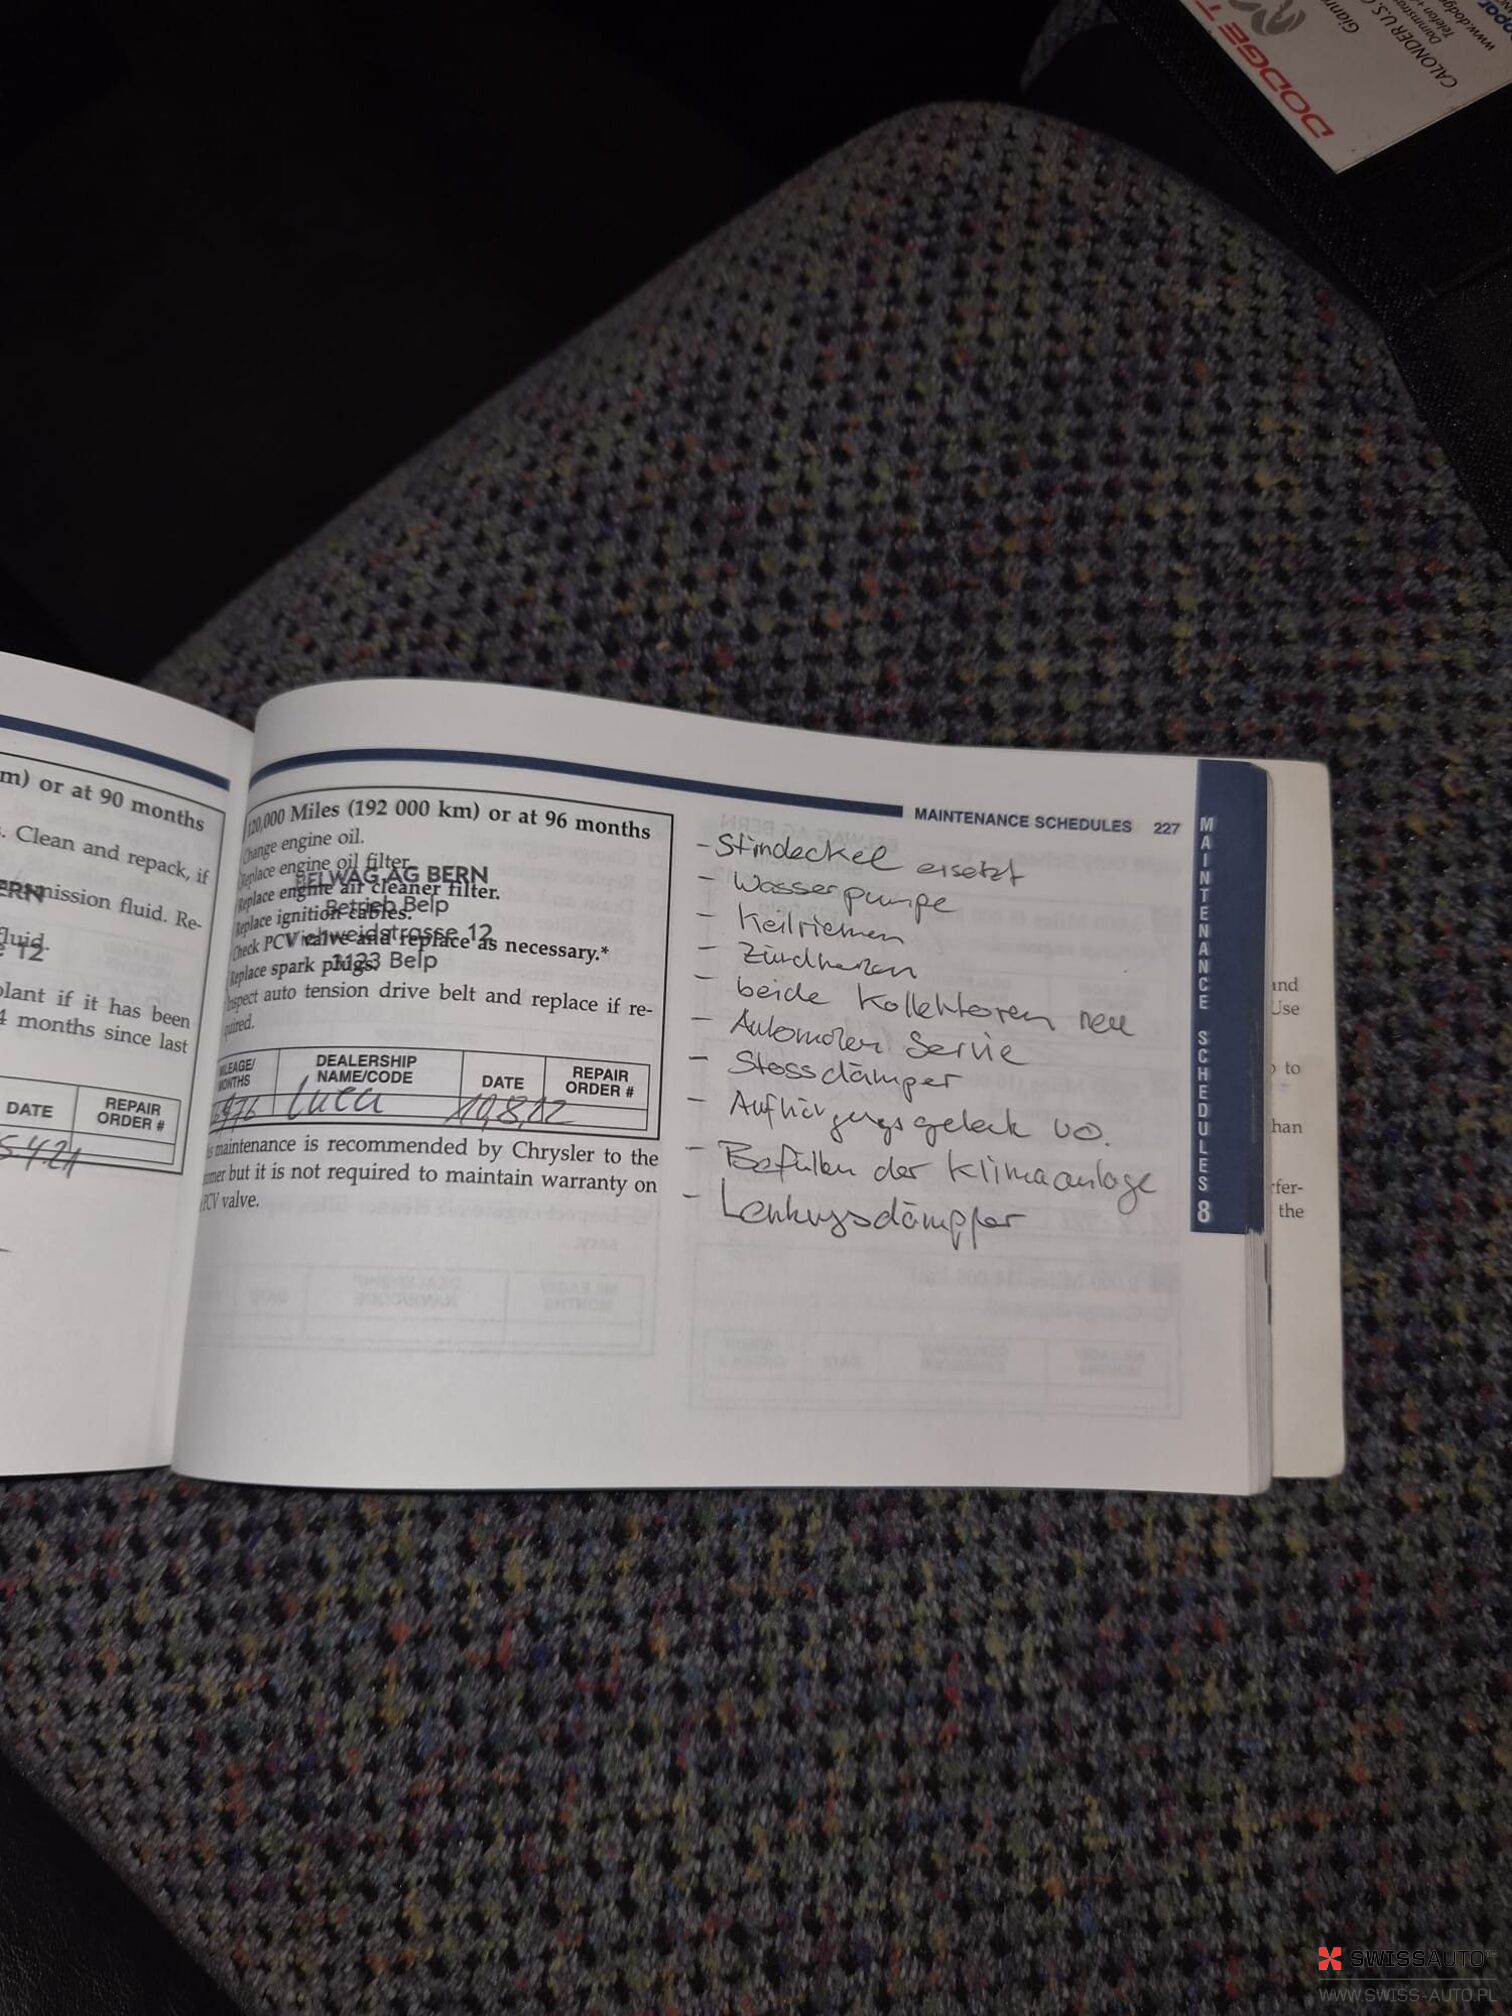 DODGE T
CALONDER U.S. C
www.dodge
m) or at 90 months
. Clean and repack, if
ERN
mission fluid. Re-
fluid.
e 12
olant if it has been
4 months since last
DATE
REPAIR ORDER #
5421
120,000 Miles (192 000 km) or at 96 months
Change engine oil.
Replace engine oil filter.
BELWAG AG BERN
Replace engine air cleaner filter.
Betrieb Belp
Replace ignition cables.
Viehweidstrasse 12
Check PCV valve and replace as necessary.*
3123 Belp
Replace spark plugs.
Inspect auto tension drive belt and replace if re-
quired.
MILEAGE/ MONTHS
DEALERSHIP NAME/CODE
DATE
REPAIR ORDER #
Luca
maintenance is recommended by Chrysler to the
omer but it is not required to maintain warranty on
PCV valve.
MAINTENANCE SCHEDULES 227
- Stirndeckel ersetzt
- Wasserpumpe
- Keilriemen
- Zündkerzen
- beide Kollektoren neu
- Automaten Servie
- Stossdämper
- Aufhängungsgelenk vo.
- Befüllen der Klimaanlage
- Lenkungsdämpfer
MAINTENANCE SCHEDULES 8
and
Use
to
han
rfer-
the
SWISSAUTO
WWW.SWISS-AUTO.PL